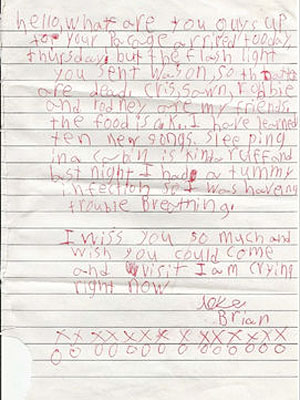 hello, what are you guys up
to? your pacage arrived tooday,
thursday, but the flash light
you sent was on, so th batt
are dead. cris, sawn, robbie
and rodney are my friends.
the food is o.k.. I have learned
ten new songs. sleeping
in a cabin is kinda ruff and
last night I had a tummy
infection so I was having
trouble Breathing.
I miss you so much and
wish you could come
and visit I am crying
right now
Brian
XXXXXXXXXXXXXX
OOOOOOOOOOOOOO